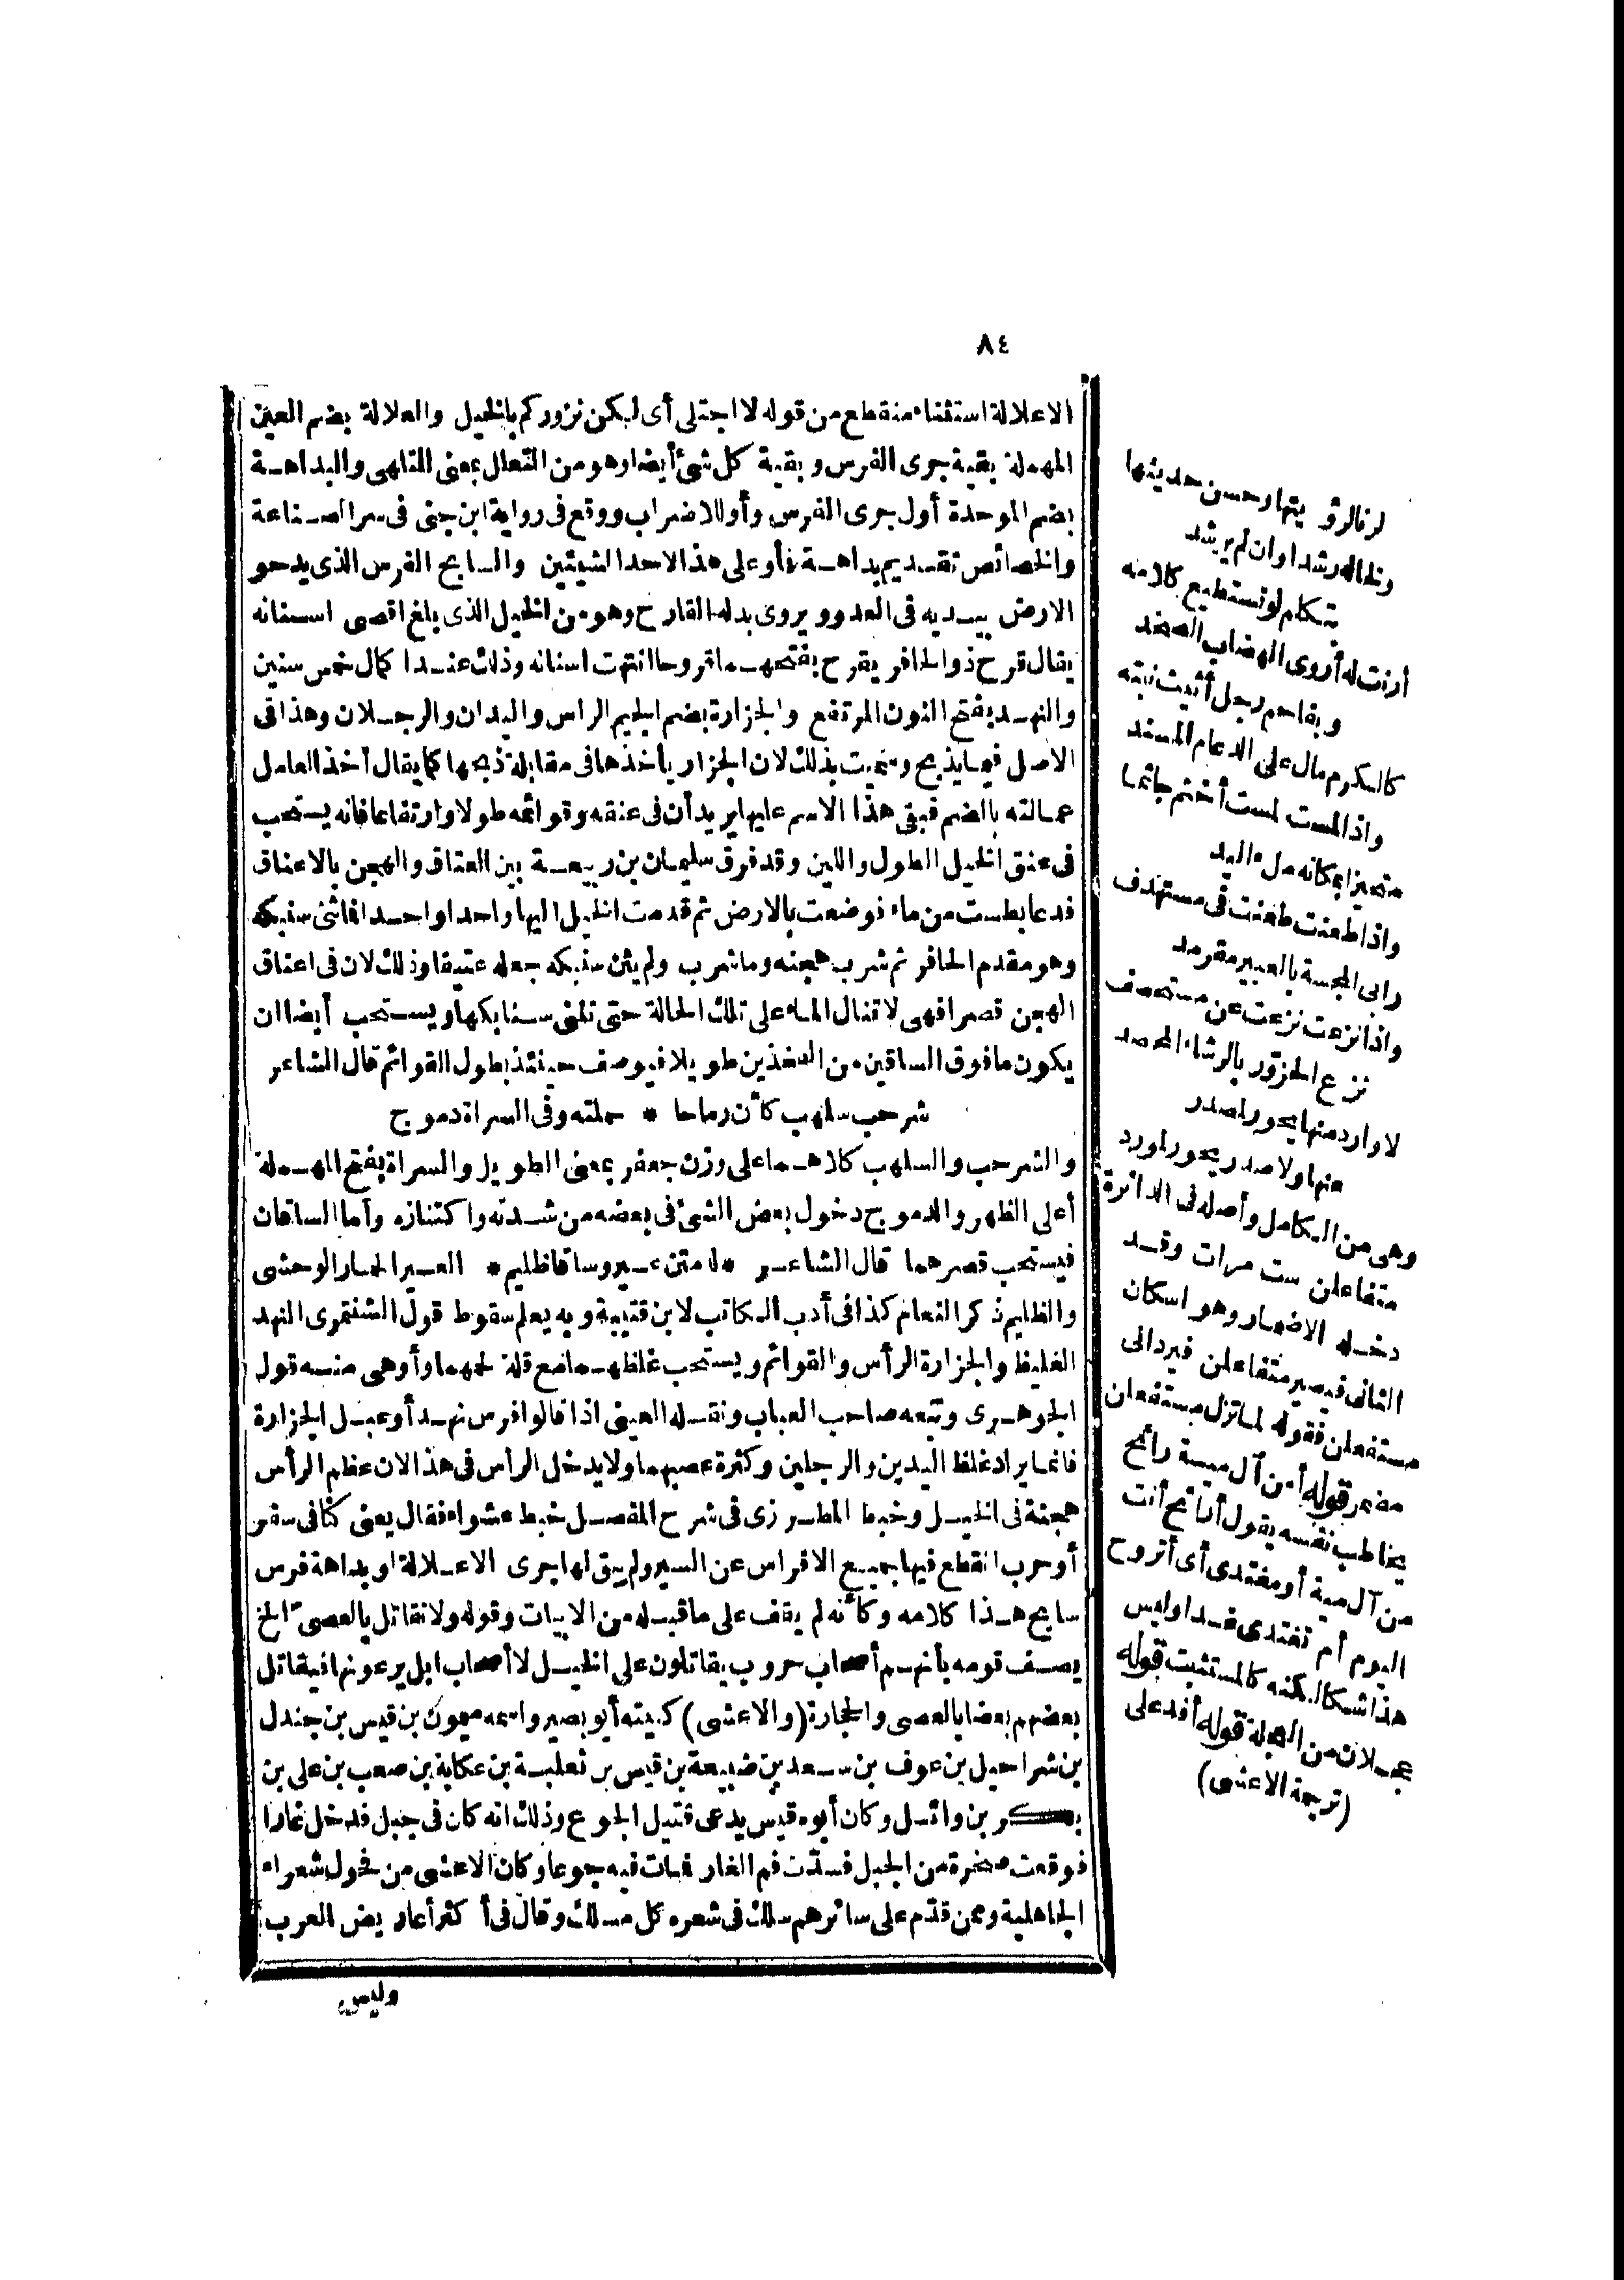 ٨٤
الاعلالة استثناء منقطع من قوله لا اجتلى أى لكن نزوركم بالخيل والعلالة بضم العين
المهملة بقية جرى الفرس وبقية كل شئ أيضا وهو من التعلل بمعنى التلهى والبداهة
بضم الموحدة أول جرى الفرس وأو للاضراب ووقع فى رواية ابن جنى فى سر الصناعة
والخصائص تقديم بداهة فأو على هذا لاحد الشيئين والسابح الفرس الذى يدحو
الارض بيديه فى العدو ويروى بدله القارح وهو من الخيل الذى بلغ اقصى اسنانه
يقال قرح ذو الحافر يقرح بفتحهما قروحا انتهت اسنانه وذلك عند اكمال خمس سنين
والنهد بفتح النون المرتفع والجزارة بضم الجيم الراس واليدان والرجلان وهذا فى
الاصل فيما يذبح وسميت بذلك لان الجزار يأخذها فى مقابلة ذبحها كما يقال أخذ العامل
عمالته بالضم فبقى هذا الاسم عليها يريد أن فى عنقه وقوائمه طولا وارتفاعا فانه يستحب
فى عنق الخيل الطول واللين وقد فرق سليمان بن ربيعة بين العتاق والهجن بالاعناق
فدعا بطست من ماء فوضعت بالارض ثم قدمت الخيل اليها واحدا واحدا فما ثنى سنبكه
وهو مقدم الحافر ثم شرب هجنه وما شرب ولم يثن سنبكه جعله عتيقا وذلك لان فى اعناق
الهجن قصرا فهى لا تنال الماء على تلك الحالة حتى تثنى سنابكها ويستحب أيضا ان
يكون ما فوق الساقين من الفخذين طويلا فيوصف حينئذ بطول القوائم قال الشاعر
شرحب سلهب كأن رماحا * حملته وفى السراة دموج
والشرحب والسلهب كلاهما على وزن جعفر بمعنى الطويل والسراة بفتح المهملة
أعلى الظهر والدموج دخول بعض الشئ فى بعضه من شدته واكتنازه وأما الساقان
فيستحب قصرهما قال الشاعر * له متن عير وساقا ظليم * العير الحمار الوحشى
والظليم ذكر النعام كذا فى أدب الكاتب لابن قتيبة وبه يعلم سقوط قول الشنتمرى النهد
الغليظ والجزارة الرأس والقوائم ويستحب غلظهما مع قلة لحمهما وأوهى منه قول
الجوهرى وتبعه صاحب العباب ونقله العينى اذا قالوا فرس نهد أو عبل الجزارة
فانما يراد غلظ اليدين والرجلين وكثرة عصبهما ولا يدخل الرأس فى هذا لان عظم الرأس
هجنة فى الخيل وخبط المطرزى فى شرح المفصل خبط عشواء فقال يعنى كنا فى سفر
أو حرب انقطع فيها جميع الافراس عن السير ولم يبق لها جرى الاعلالة او بداهة فرس
سابح هذا كلامه وكأنه لم يقف على ما قبله من الابيات وقوله ولا نقاتل بالعصى الخ
يصف قومه بأنهم أصحاب حروب يقاتلون على الخيل لا أصحاب ابل يرعونها فيقاتل
بعضهم بعضا بالعصى والحجارة (والاعشى) كنيته أبو بصير واسمه ميمون بن قيس بن جندل
بن شراحيل بن عوف بن سعد بن ضبيعة بن قيس بن ثعلبة بن عكابة بن صعب بن على بن
بكر بن وائل وكان أبوه قيس يدعى قتيل الجوع وذلك انه كان فى جبل فدخل غارا
فوقعت صخرة من الجبل فسدت فم الغار فمات فيه جوعا وكان الاعشى من فحول شعراء
الجاهلية وممن قدم على سائرهم سلك فى شعره كل مسلك وقال فى أكثر أعاريض العرب
وليس
لرنا لرؤيتها وحسن حديثها
ولخاله رشدا وان لم يرشد
بتكلم لو تستطيع كلامه
لدنت له أروى الهضاب الصخد
وبفاحم رجل أثيث نبته
كالكرم مال على الدعام المسند
واذا لمست لمست أخثم جاثما
متحيزا بمكانه ملء اليد
واذا طعنت طعنت فى مستهدف
رابى المجسة بالعبير مقرمد
واذا نزعت نزعت عن مستحصف
نزع الحزور بالرشاء المحصد
لا وارد منها يحور لمصدر
عنها ولا صدر يحور لمورد
وهى من الكامل وأصله فى الدائرة
متفاعلن ست مرات وقد
دخله الاضمار وهو اسكان
الثانى فيصير متفاعلن فيرد الى
مستفعلن فقوله لما تزل مستفعلن
مضمر قوله أمن آل مية رائح
يخاطب نفسه يقول أرائح أنت
من آل مية أو مغتدى أى أتروح
اليوم أم تغتدى غدا وليس
هذا شكا لكنه كالمستثبت قوله
عجلان من العجلة قوله أفد على
(ترجمة الاعشى)